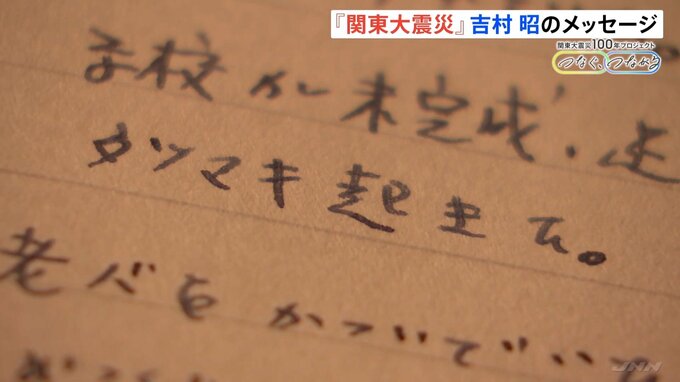 『関東大震災』吉村 昭のメッセージ
関東大震災100年プロジェクト
つなぐ、つながる
学校が未完成、
タツマキ起きて。
老バをかついで
JNN